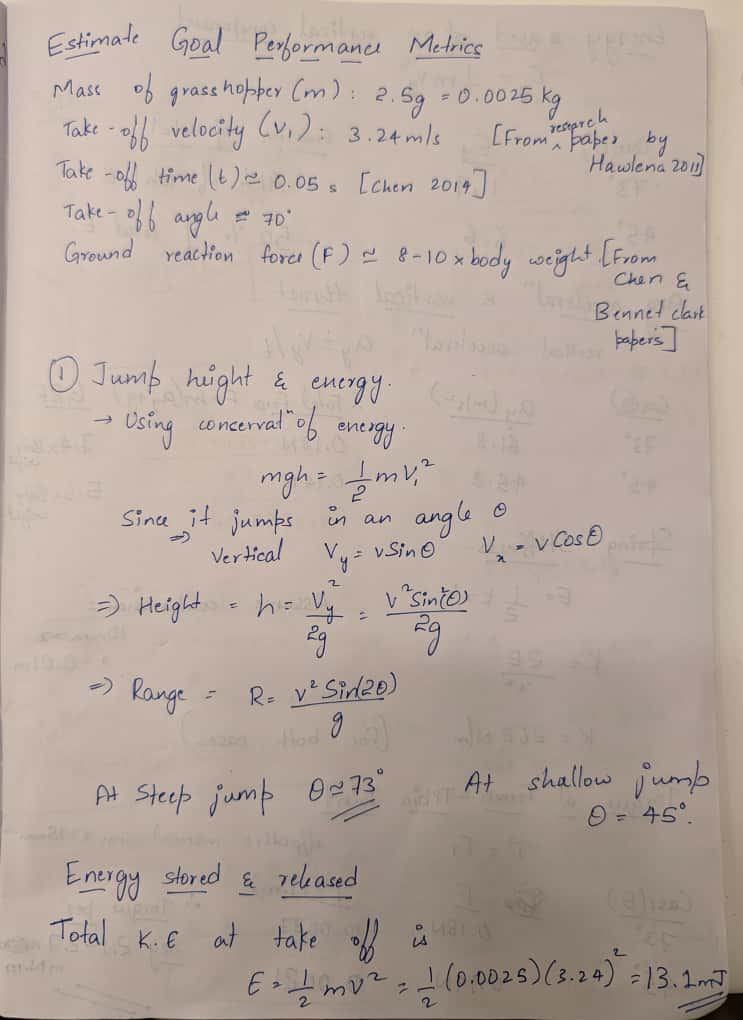 Estimate Goal Performance Metrics
Mass of grasshopper (m) : 2.5g = 0.0025 kg
Take-off velocity (V₁) : 3.24 m/s [From research paper by
Hawlena 2011]
Take-off time (t) ≃ 0.05 s [Chen 2014]
Take-off angle ≃ 70°
Ground reaction force (F) ≃ 8-10 x body weight. [From
Chen &
Bennet clark
papers]
① Jump height & energy.
→ Using conservatⁿ of energy.
mgh = 1/2 m V₁²
Since it jumps in an angle θ
⇒ Vertical Vy = v Sin θ Vx = v Cos θ
⇒ Height = h = Vy²/2g = v² Sin²(θ)/2g
⇒ Range = R = v² Sin(2θ)/g
At Steep jump θ ≃ 73° At shallow jump
θ = 45°.
Energy stored & released
Total K.E at take off is
E = 1/2 mv² = 1/2 (0.0025) (3.24)² = 13.1 mJ